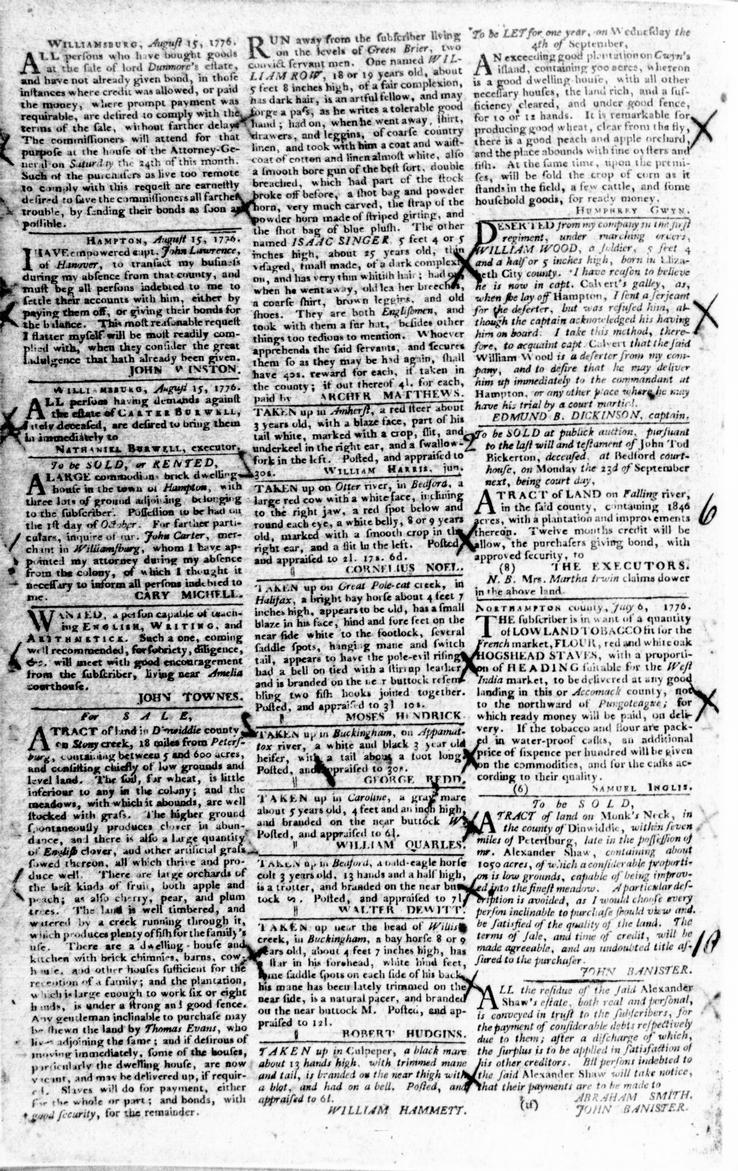 WILLIAMSBURG, August 15, 1776.
ALL persons who have bought goods
at the sale of lord Dunmore's estate,
and have not already given bond, in those
instances where credit was allowed, or paid
the money, where prompt payment was
requirable, are desired to comply with the
terms of the sale, without farther delay.
The commissioners will attend for that
purpose at the house of the Attorney-Ge-
neral on Saturday the 24th of this month.
Such of the purchasers as live too remote
to comply with this request are earnestly
desired to save the commissioners all farther
trouble, by sending their bonds as soon as
possible.
HAMPTON, August 15, 1776.
I HAVE empowered capt. John Lawrence,
of Hanover, to transact my business
during my absence from that county, and
must beg all persons indebted to me to
settle their accounts with him, either by
paying them off, or giving their bonds for
the balance. This most reasonable request
I flatter myself will be most readily com-
plied with, when they consider the great
indulgence that hath already been given.
JOHN WINSTON.
WILLIAMSBURG, August 15, 1776.
ALL persons having demands against
the estate of CARTER BURWELL,
lately deceased, are desired to bring them
in immediately to
NATHANIEL BURWELL, executor.
To be SOLD, or RENTED,
A LARGE commodious brick dwelling-
house in the town of Hampton, with
three lots of ground adjoining, belonging
to the subscriber. Possession to be had on
the 1st day of October. For farther parti-
culars, inquire of mr. John Carter, mer-
chant in Williamsburg, whom I have ap-
pointed my attorney during my absence
from the colony, of which I thought it
necessary to inform all persons indebted to
me. CARY MICHELL.
WANTED, a person capable of teach-
ing ENGLISH, WRITING, and
ARITHMETICK. Such a one, coming
well recommended, for sobriety, diligence,
&c. will meet with good encouragement
from the subscriber, living near Amelia
courthouse.
JOHN TOWNES.
For SALE,
A TRACT of land in Dinwiddie county
on Stony creek, 18 miles from Peters-
burg, containing between 5 and 600 acres,
and consisting chiefly of low grounds and
level land. The soil, for wheat, is little
inferiour to any in the colony; and the
meadows, with which it abounds, are well
stocked with grass. The higher ground
spontaneously produces clover in abun-
dance, and there is also a large quantity
of English clover, and other artificial grass
sowed thereon, all which thrive and pro-
duce well. There are large orchards of
the best kinds of fruit, both apple and
peach; as also cherry, pear, and plum
trees. The land is well timbered, and
watered by a creek running through it,
which produces plenty of fish for the family's
use. There are a dwelling-house and
kitchen with brick chimnies, barns, cow-
house, and other houses sufficient for the
reception of a family; and the plantation,
which is large enough to work six or eight
hands, is under a strong and good fence.
Any gentleman inclinable to purchase may
be shewn the land by Thomas Evans, who
lives adjoining the same; and if desirous of
moving immediately, some of the houses,
particularly the dwelling house, are now
vacant, and may be delivered up, if requir-
ed. Slaves will do for payment, either
for the whole or part; and bonds, with
good security, for the remainder.
RUN away from the subscriber living
on the levels of Green Brier, two
convict servant men. One named WIL-
LIAM ROW, 18 or 19 years old, about
5 feet 8 inches high, of a fair complexion,
has dark hair, is an artful fellow, and may
forge a pass, as he writes a tolerable good
hand; had on, when he went away, shirt,
drawers, and leggins, of coarse country
linen, and took with him a coat and waist-
coat of cotton and linen almost white, also
a smooth bore gun of the best sort, double
breached, which had part of the stock
broke off before, a shot bag and powder
horn, very much carved, the strap of the
powder horn made of striped girting, and
the shot bag of blue plush. The other
named ISAAC SINGER, 5 feet 4 or 5
inches high, about 25 years old, thin
visaged, small made, of a dark complexi-
on, and has very thin whitish hair; had on
when he went away, old leather breeches,
a coarse shirt, brown leggins, and old
shoes. They are both Englishmen, and
took with them a fur hat, besides other
things too tedious to mention. Whoever
apprehends the said servants, and secures
them so as they may be had again, shall
have 40s. reward for each, if taken in
the county; if out thereof 4l. for each,
paid by ARCHER MATTHEWS.
TAKEN up in Amherst, a red steer about
3 years old, with a blaze face, part of his
tail white, marked with a crop, slit, and
underkeel in the right ear, and a swallow-
fork in the left. Posted, and appraised to
30s. WILLIAM HARRIS, jun.
TAKEN up on Otter river, in Bedford, a
large red cow with a white face, inclining
to the right jaw, a red spot below and
round each eye, a white belly, 8 or 9 years
old, marked with a smooth crop in the
right ear, and a slit in the left. Posted,
and appraised to 2l. 17s. 6d.
CORNELIUS NOEL.
TAKEN up on Great Pole-cat creek, in
Halifax, a bright bay horse about 4 feet 7
inches high, appears to be old, has a small
blaze in his face, hind and fore feet on the
near side white to the footlock, several
saddle spots, hanging mane and switch
tail, appears to have the pole-evil rising,
had a bell on tied with a stirrup leather,
and is branded on the near buttock resem-
bling two fish hooks joined together.
Posted, and appraised to 3l 10s.
MOSES HENDRICK.
TAKEN up in Buckingham, on Appamat-
tox river, a white and black 3 year old
heifer, with a tail about a foot long.
Posted, and appraised to 30s.
GEORGE REDD.
TAKEN up in Caroline, a gray mare
about 5 years old, 4 feet and an inch high,
and branded on the near buttock W.
Posted, and appraised to 6l.
WILLIAM QUARLES.
TAKEN up in Bedford, a bald-eagle horse
colt 3 years old, 13 hands and a half high,
is a trotter, and branded on the near but-
tock Posted, and appraised to 7l.
WALTER DEWITT.
TAKEN up near the head of Willis's
creek, in Buckingham, a bay horse 8 or 9
years old, about 4 feet 7 inches high, has
a star in his forehead, white hind feet,
some saddle spots on each side of his back,
his mane has been lately trimmed on the
near side, is a natural pacer, and branded
on the near buttock M. Posted, and ap-
praised to 12l.
ROBERT HUDGINS.
TAKEN up in Culpeper, a black mare
about 13 hands high, with trimmed mane
and tail, is branded on the near thigh with
a blot, and had on a bell. Posted, and
appraised to 6l.
WILLIAM HAMMETT.
To be LET for one year, on Wednesday the
4th of September,
AN exceeding good plantation on Gwyn's
island, containing 500 acres, whereon
is a good dwelling house, with all other
necessary houses, the land rich, and a suf-
ficiency cleared, and under good fence,
for 10 or 12 hands. It is remarkable for
producing good wheat, clear from the fly;
there is a good peach and apple orchard,
and the place abounds with fine oysters and
fish. At the same time, upon the premi-
ses, will be sold the crop of corn as it
stands in the field, a few cattle, and some
household goods, for ready money.
HUMPHREY GWYN.
DESERTED from my company in the first
regiment, under marching orders,
WILLIAM WOOD, a soldier, 5 feet 4
and a half or 5 inches high, born in Eliza-
beth City county. I have reason to believe
he is now in capt. Calvert's galley, as,
when she lay off Hampton, I sent a serjeant
for the deserter, but was refused him, al-
though the captain acknowledged his having
him on board. I take this method, there-
fore, to acquaint capt. Calvert that the said
William Wood is a deserter from my com-
pany, and to desire that he may deliver
him up immediately to the commandant at
Hampton, or any other place where he may
have his trial by a court martial.
EDMUND B. DICKINSON, captain.
To be SOLD at publick auction, pursuant
to the last will and testament of John Tod
Bickerton, deceased, at Bedford court-
house, on Monday the 23d of September
next, being court day,
A TRACT of LAND on Falling river,
in the said county, containing 1846
acres, with a plantation and improvements
thereon. Twelve months credit will be
allow, the purchasers giving bond, with
approved security, to
(8) THE EXECUTORS.
N. B. Mrs. Martha Irwin claims dower
in the above land.
NORTHAMPTON county, July 6, 1776.
THE subscriber is in want of a quantity
of LOWLAND TOBACCO fit for the
French market, FLOUR, red and white oak
HOGSHEAD STAVES, with a proporti-
on of HEADING suitable for the West
India market, to be delivered at any good
landing in this or Accomack county, not
to the northward of Pungoteague; for
which ready money will be paid, on deli-
very. If the tobacco and flour are pack-
ed in water-proof casks, an additional
price of sixpence per hundred will be given
on the commodities, and for the casks ac-
cording to their quality.
(6) SAMUEL INGLIS.
To be SOLD,
A TRACT of land on Monk's Neck, in
the county of Dinwiddie, within seven
miles of Petersburg, late in the possession of
mr. Alexander Shaw, containing about
1050 acres, of which a considerable proporti-
on is low grounds, capable of being improv-
ed into the finest meadow. A particular des-
cription is avoided, as I would choose every
person inclinable to purchase should view and
be satisfied of the quality of the land. The
terms of sale, and time of credit, will be
made agreeable, and an undoubted title as-
sured to the purchaser.
JOHN BANISTER.
ALL the residue of the said Alexander
Shaw's estate, both real and personal,
is conveyed in trust to the subscribers, for
the payment of considerable debts respectively
due to them; after a discharge of which,
the surplus is to be applied in satisfaction of
his other creditors. All persons indebted to
the said Alexander Shaw will take notice,
that their payments are to be made to
ABRAHAM SMITH.
(tf) JOHN BANISTER.